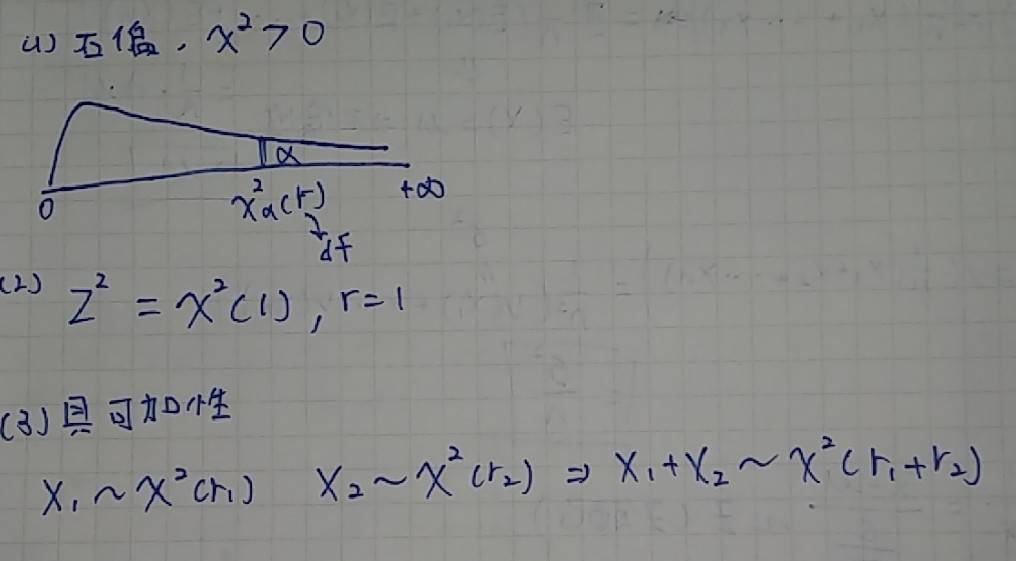 (1) 右偏, χ² > 0
α
0 χ²α(r) +∞
df
(2) Z² = χ²(1), r=1
(3) 具可加性
X₁ ~ χ²(r₁) X₂ ~ χ²(r₂) ⇒ X₁+X₂ ~ χ²(r₁+r₂)